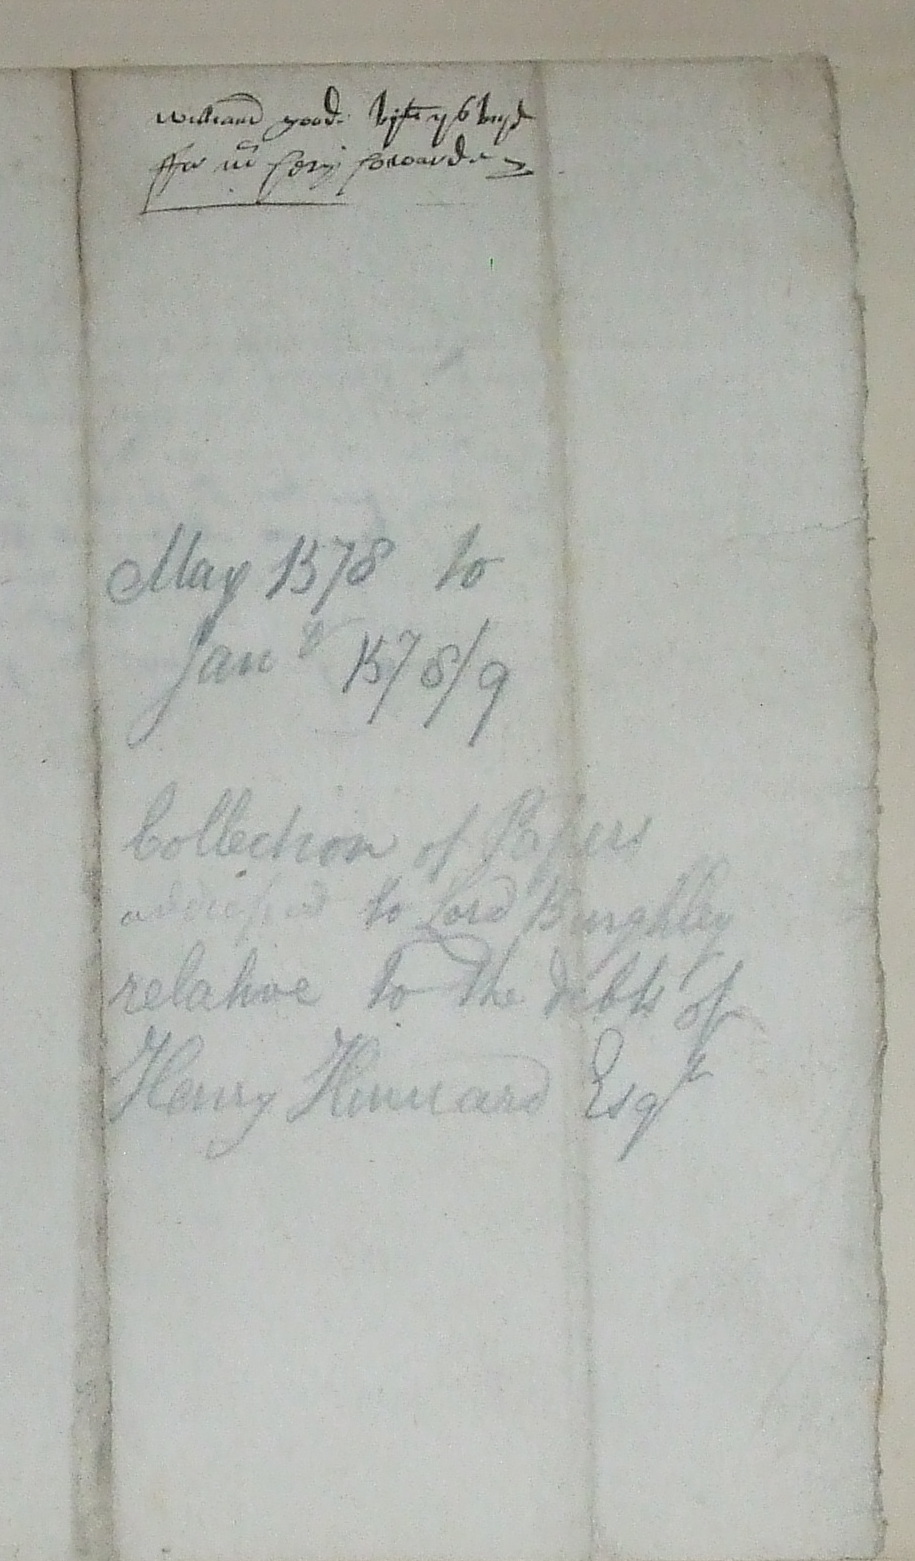 william good
ffor mr
May 1578 to
Jany 1578/9
Collection of Papers
addressed to Lord Burghley
relative to the debts of
Henry Esqr